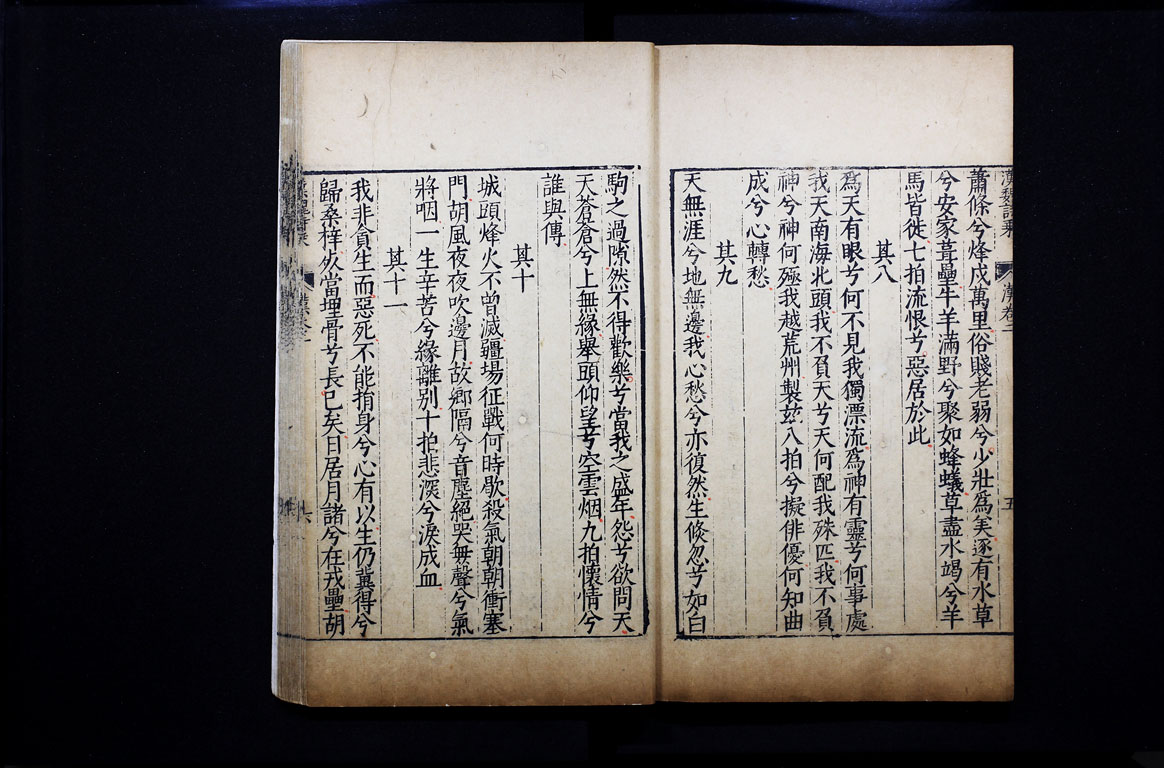 漢魏詩乘
漢卷二
五
蕭條兮烽戍萬里俗賤老弱兮少壯爲美逐有水草
兮安家葺壘牛羊滿野兮聚如蜂蟻草盡水竭兮羊
馬皆徙七拍流恨兮惡居於此
其八
爲天有眼兮何不見我獨漂流爲神有靈兮何事處
我天南海北頭我不負天兮天何配我殊匹我不負
神兮神何殛我越荒州製兹八拍兮擬俳優何知曲
成兮心轉愁
其九
天無涯兮地無邊我心愁兮亦復然生倏忽兮如白
駒之過隙然不得歡樂兮當我之盛年怨兮欲問天
天蒼蒼兮上無緣舉頭仰望兮空雲烟九拍懷情兮
誰與傳
其十
城頭烽火不曾滅疆場征戰何時歇殺氣朝朝衝塞
門胡風夜夜吹邊月故鄉隔兮音塵絕哭無聲兮氣
將咽一生辛苦兮緣離别十拍悲深兮淚成血
其十一
我非貪生而惡死不能捐身兮心有以生仍冀得兮
歸桑梓死當埋骨兮長已矣日居月諸兮在戎壘胡